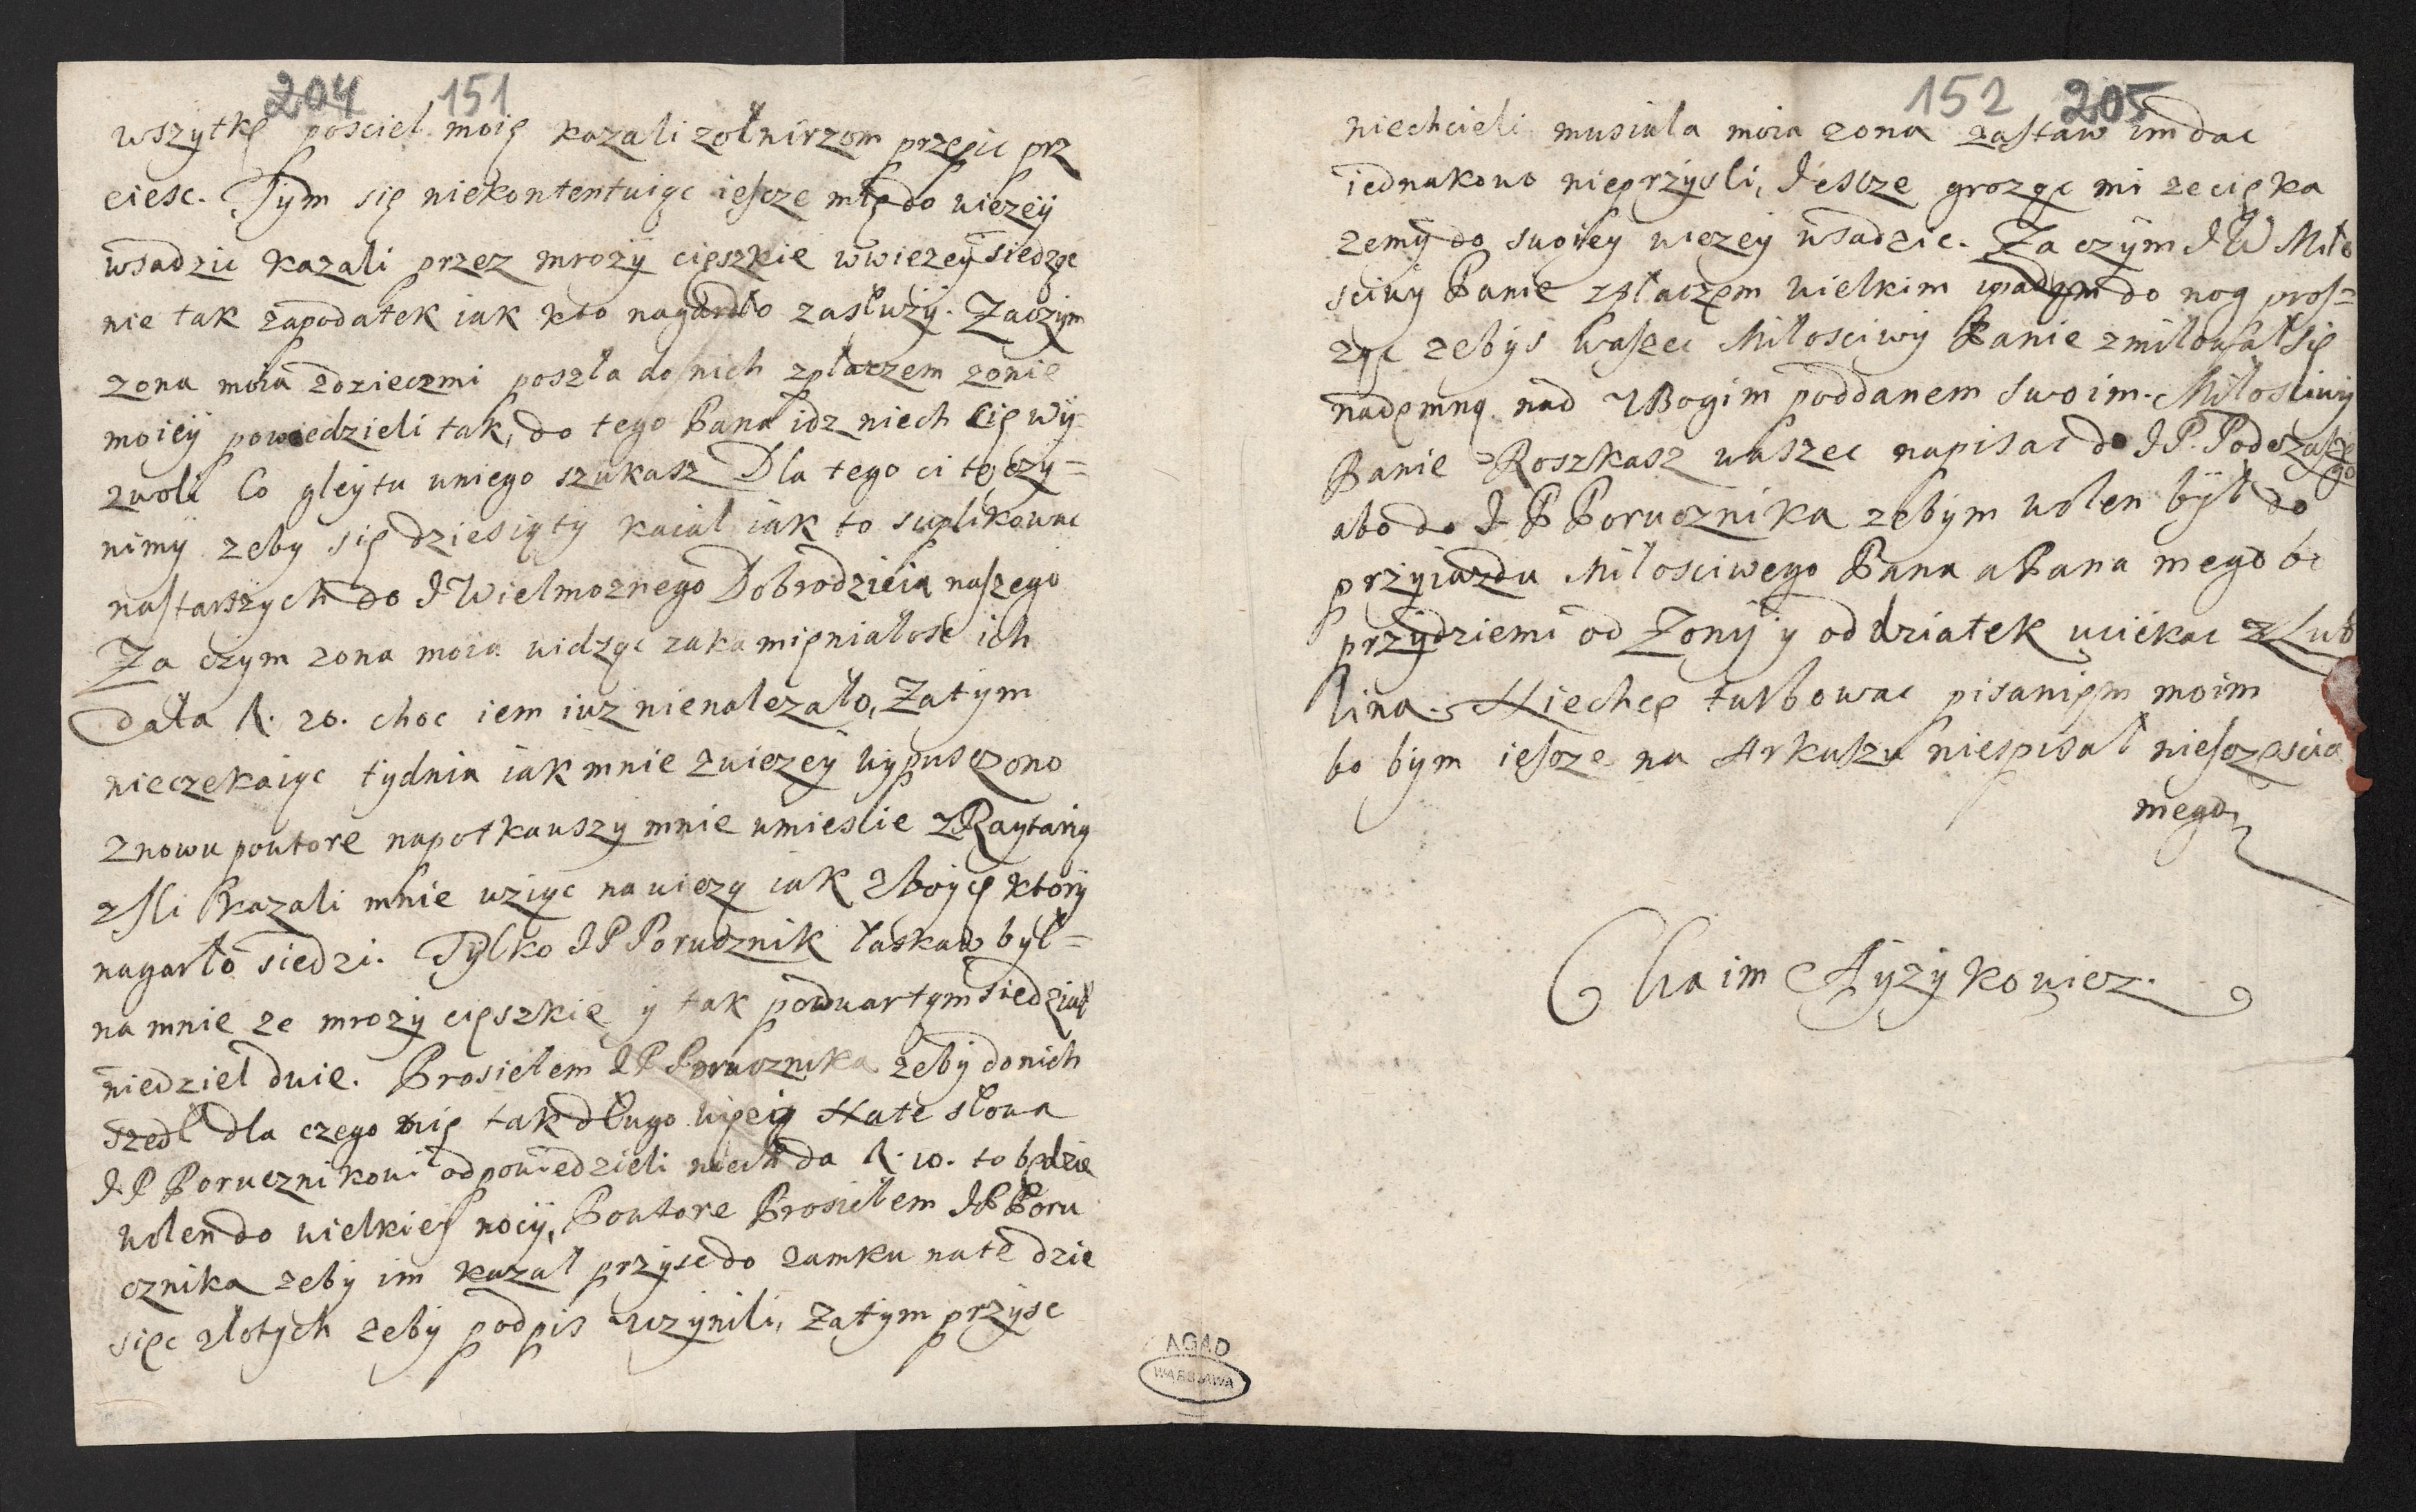 204 151
wszytkę posciel moię kazali zołnirzom przepic prz
ciesc. Tym się niekontentuiąc iescze mię do wiezeÿ
wsadzic kazali przez mrozÿ cięszkie wwiezeÿ siedzę
nie tak zapodatek iak kto nagardło zasłuzÿ. Zaczÿm
zona moia zdzieczmi poszła do nich zpłaczem zonie
moieÿ powiedzieli tak, do tego Pana idz niech cię wÿ
zwoli Co gleÿtu uniego szukasz Dla tego ci to czÿ=
nimÿ zeby się dziesiątÿ kaiał iak to suplikowac
nastarszych do J Wielmoznego Dobrodzieia naszego
Za czÿm zona moia widząc zakamięniałosc ich
Dała R. 20. choc iem iuz nienalezało, Zatÿm
nieczekaiąc tÿdnia iak mnie zwiezeÿ wÿpusczono
znowu powtore napotkawszÿ mnie wmiescie zRaytarią
zsli kazali mnie wziąc nawiezą iak zboÿcę ktorÿ
nagarło siedzi. Tÿlko J P Porucznik łaskaw bÿł=
na mnie ze mrozÿ cięszkię ÿ tak powuartÿm siedział
niedziel dwie. Prosiełem J P Porucznika zebÿ donich
szedł dla czego mię tak długo więzią Nate słowa
J P Porucznikowi odpowiedzieli niech da R. 10. to będzie
wolen do wielkieÿ nocÿ, Powtore Prosiełem J P Poru
cznika zebÿ im kazał przÿsc do zamku nate dzie
sięc złotÿch zebÿ podpis uczÿnili, Zatÿm przÿsc
152 205
niechcieli musiała moia zona zastaw im dac
iednakowo nieprzÿsli, Jescze grozęc mi zecięka
zemÿ do swoieÿ wiezeÿ wsadzic. Za czÿm J W Miło
sciwÿ Panie zpłaczem wielkim upadam do nog pros=
ząc zebÿs waszec Miłosciwÿ Panie zmiłował się
nademną nad UBogim poddanem swoim. Miłosciwÿ
Panie Roszkasz waszec napisac do J P. Podczasze
go
abo do J P Porucznika zebÿm wolen bÿł do
przÿiazdu Miłosciwego Pana a Pana mego bo
przÿdziemi od Zonÿ ÿ od dziatek uciekac z Lub
lina. Niechcę turbowac pisanięm moim
bo bÿm iescze na Arkuszu niespisał niesczęscia
mego
Chaim Aÿzÿkowicz.
AGAD
WARSZAWA